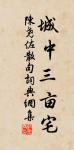 城中三亩宅
陈尧佐散句词典网集